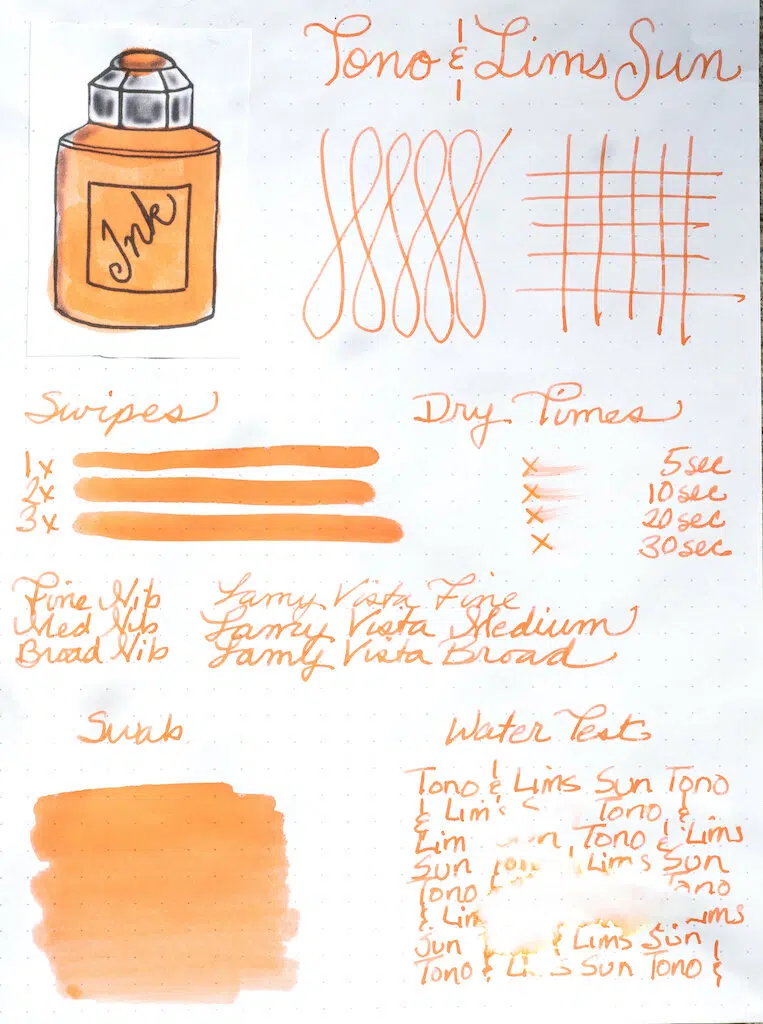 Tono & Lims Sun
Ink
Swipes
1x
2x
3x
Dry Times
x 5sec
x 10sec
x 20sec
x 30sec
Fine Nib Lamy Vista Fine
Med Nib Lamy Vista Medium
Broad Nib Lamy Vista Broad
Swab
Water Test
Tono & Lims Sun Tono
& Lims Tono &
Lim n, Tono & Lims
Sun Lims Sun
Tono Tono
& Lim ms
Sun & Lims Sun
Tono & Sun Tono &